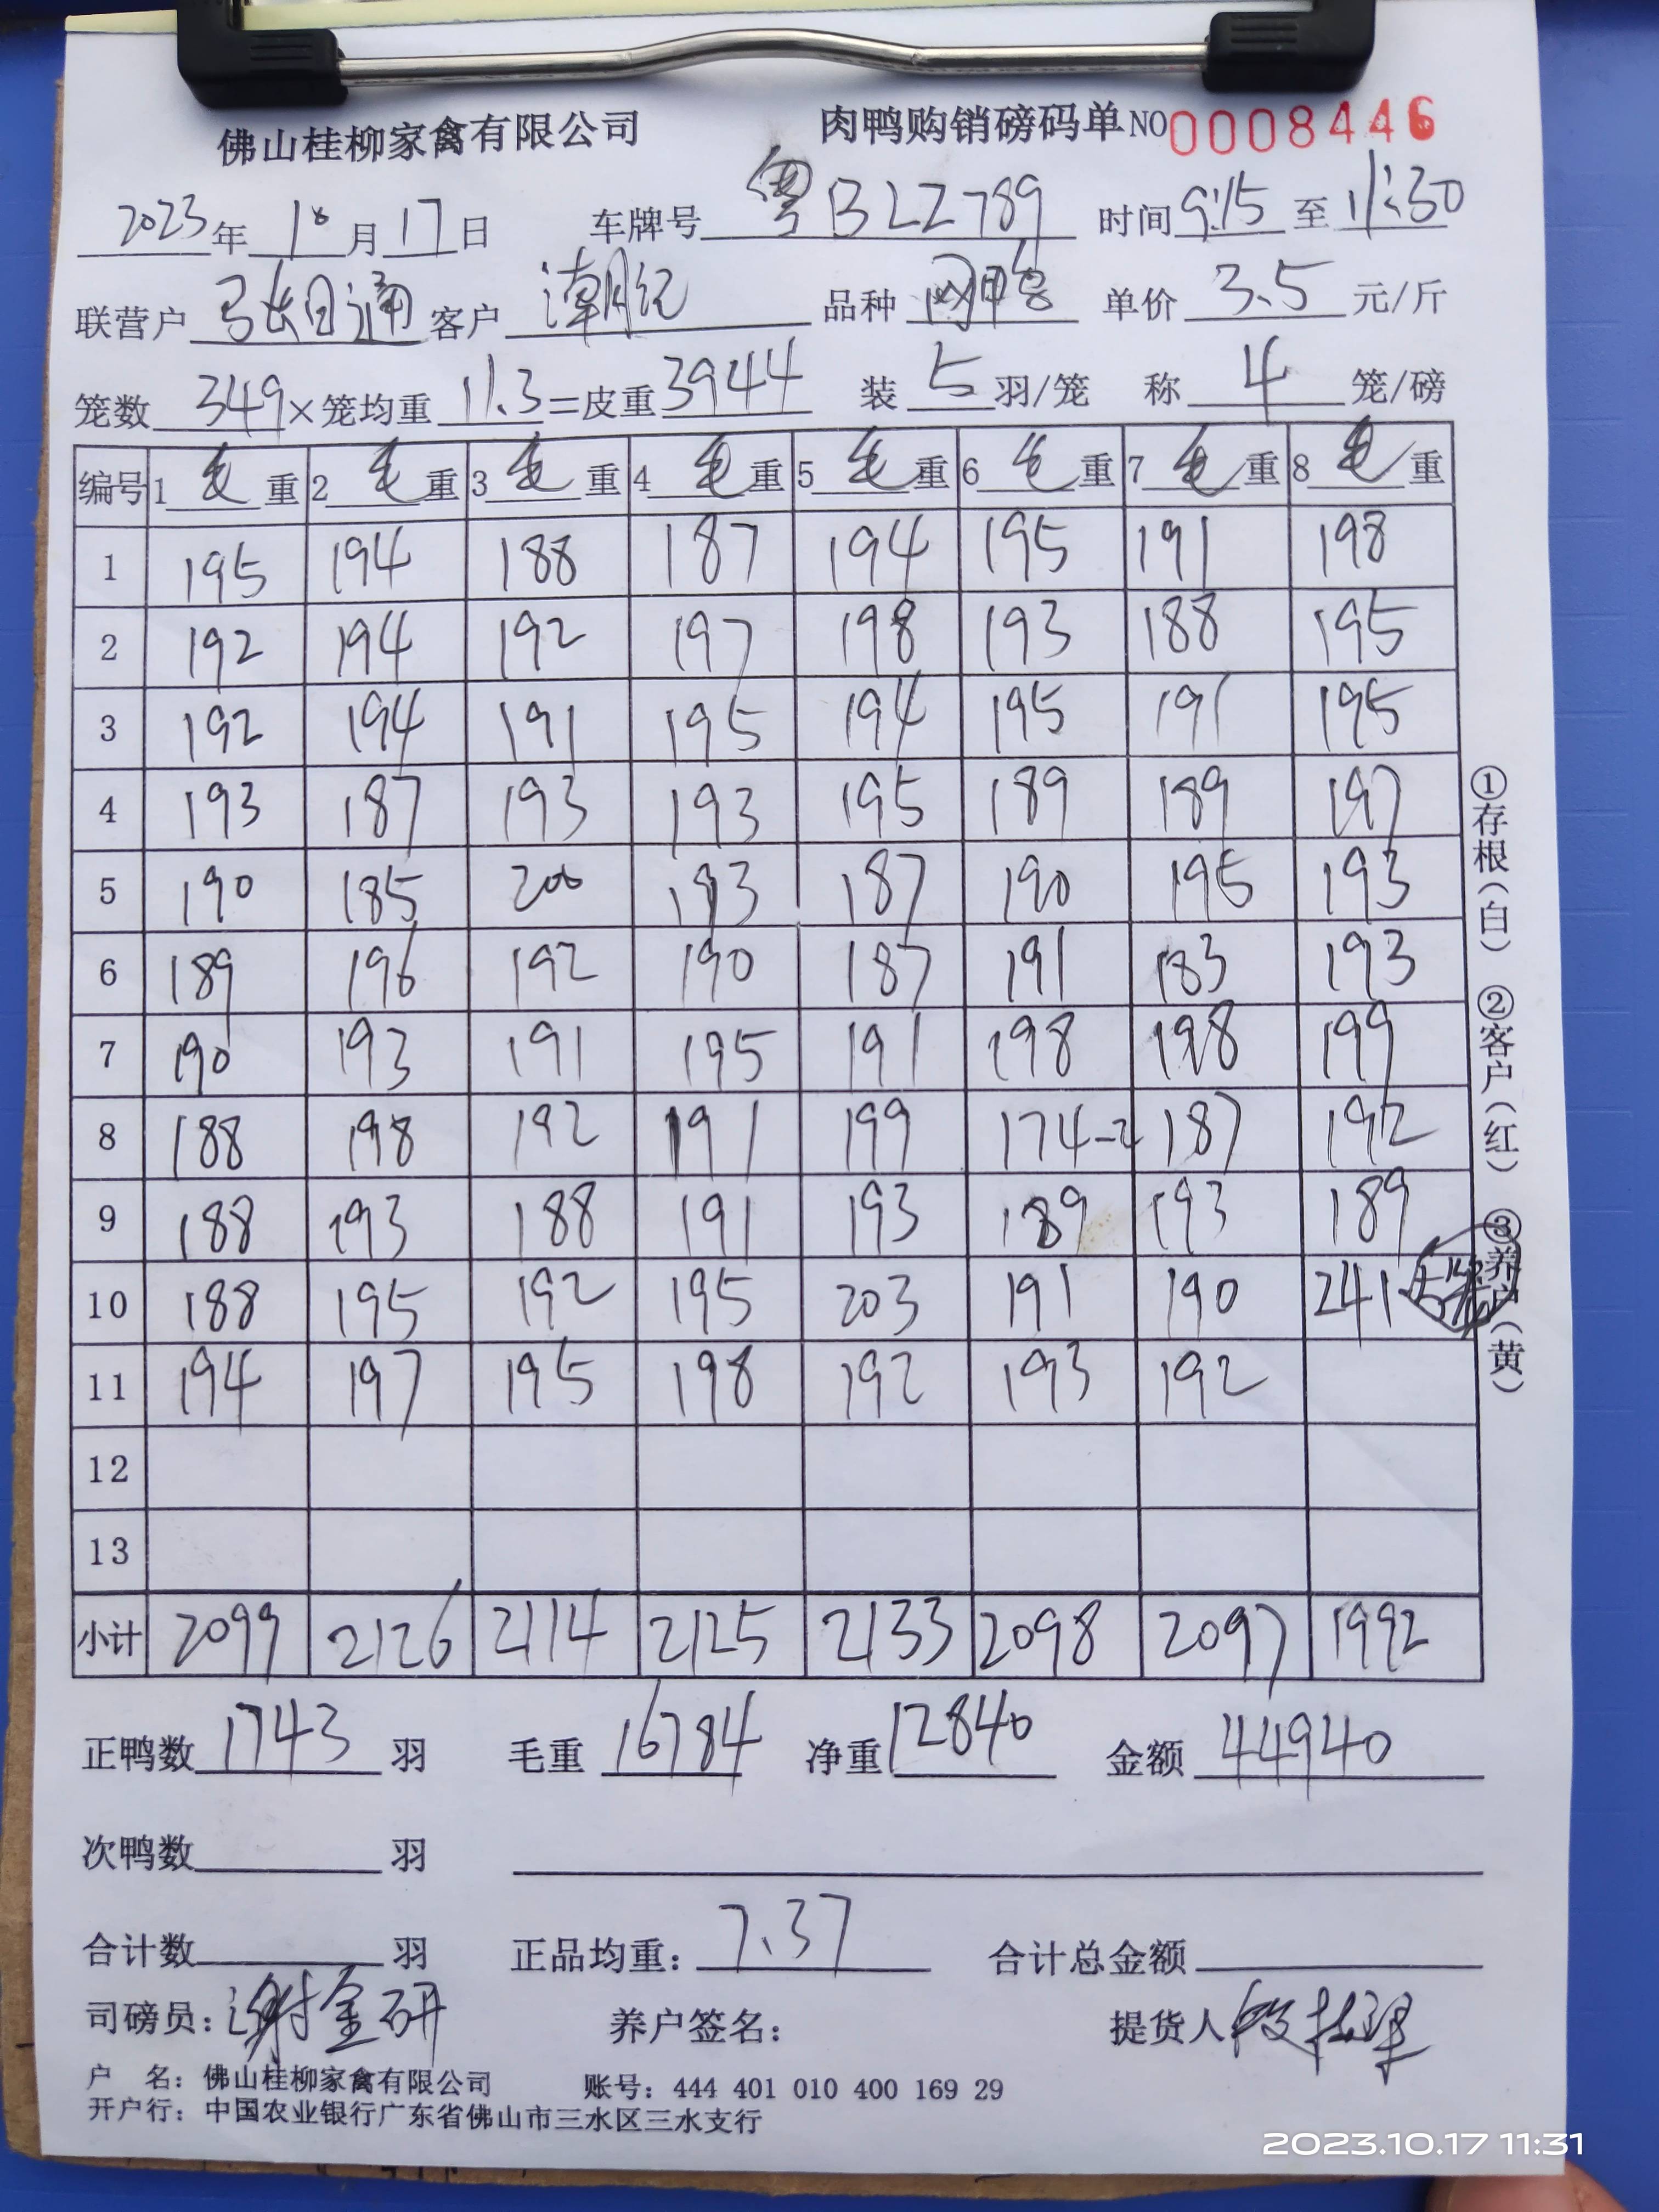 佛山桂柳家禽有限公司 肉鸭购销磅码单 NO 0008446
2023年10月17日 车牌号 粤BLZ789 时间 9:15 至 11:30
联营户 通 客户 潮 品种 单价 3.5 元/斤
笼数 349 × 笼均重 11.3 = 皮重 3944 装 5 羽/笼 称 4 笼/磅
编号 1 毛 重 2 毛 重 3 毛 重 4 毛 重 5 毛 重 6 毛 重 7 毛 重 8 毛 重
1 195 194 188 187 194 195 191 198
2 192 194 192 197 198 193 188 195
3 192 194 191 195 194 195 191 195
4 193 187 193 193 195 189 189 197
5 190 185 200 193 187 190 195 193
6 189 196 192 190 187 191 183 193
7 190 193 191 195 191 198 198 199
8 188 198 192 191 199 174-2 187 192
9 188 193 188 191 193 189 193 189
10 188 195 192 195 203 191 190 241
11 194 197 195 198 192 193 192
12
13
小计 2099 2126 2114 2125 2133 2098 2097 1992
①存根(白) ②客户(红) ③养户(黄)
正鸭数 1743 羽 毛重 16784 净重 12840 金额 44940
次鸭数 羽
合计数 羽 正品均重: 7.37 合计总金额
司磅员: 谢金研 养户签名: 提货人
户 名: 佛山桂柳家禽有限公司 账号: 444 401 010 400 169 29
开户行: 中国农业银行广东省佛山市三水区三水支行
2023.10.17 11:31